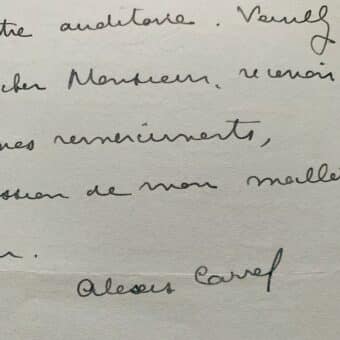 tre auditoire. Veuill
cher Monsieur, recevoir
mes remerciements,
ssion de mon meille
r.
Alexis Carrel